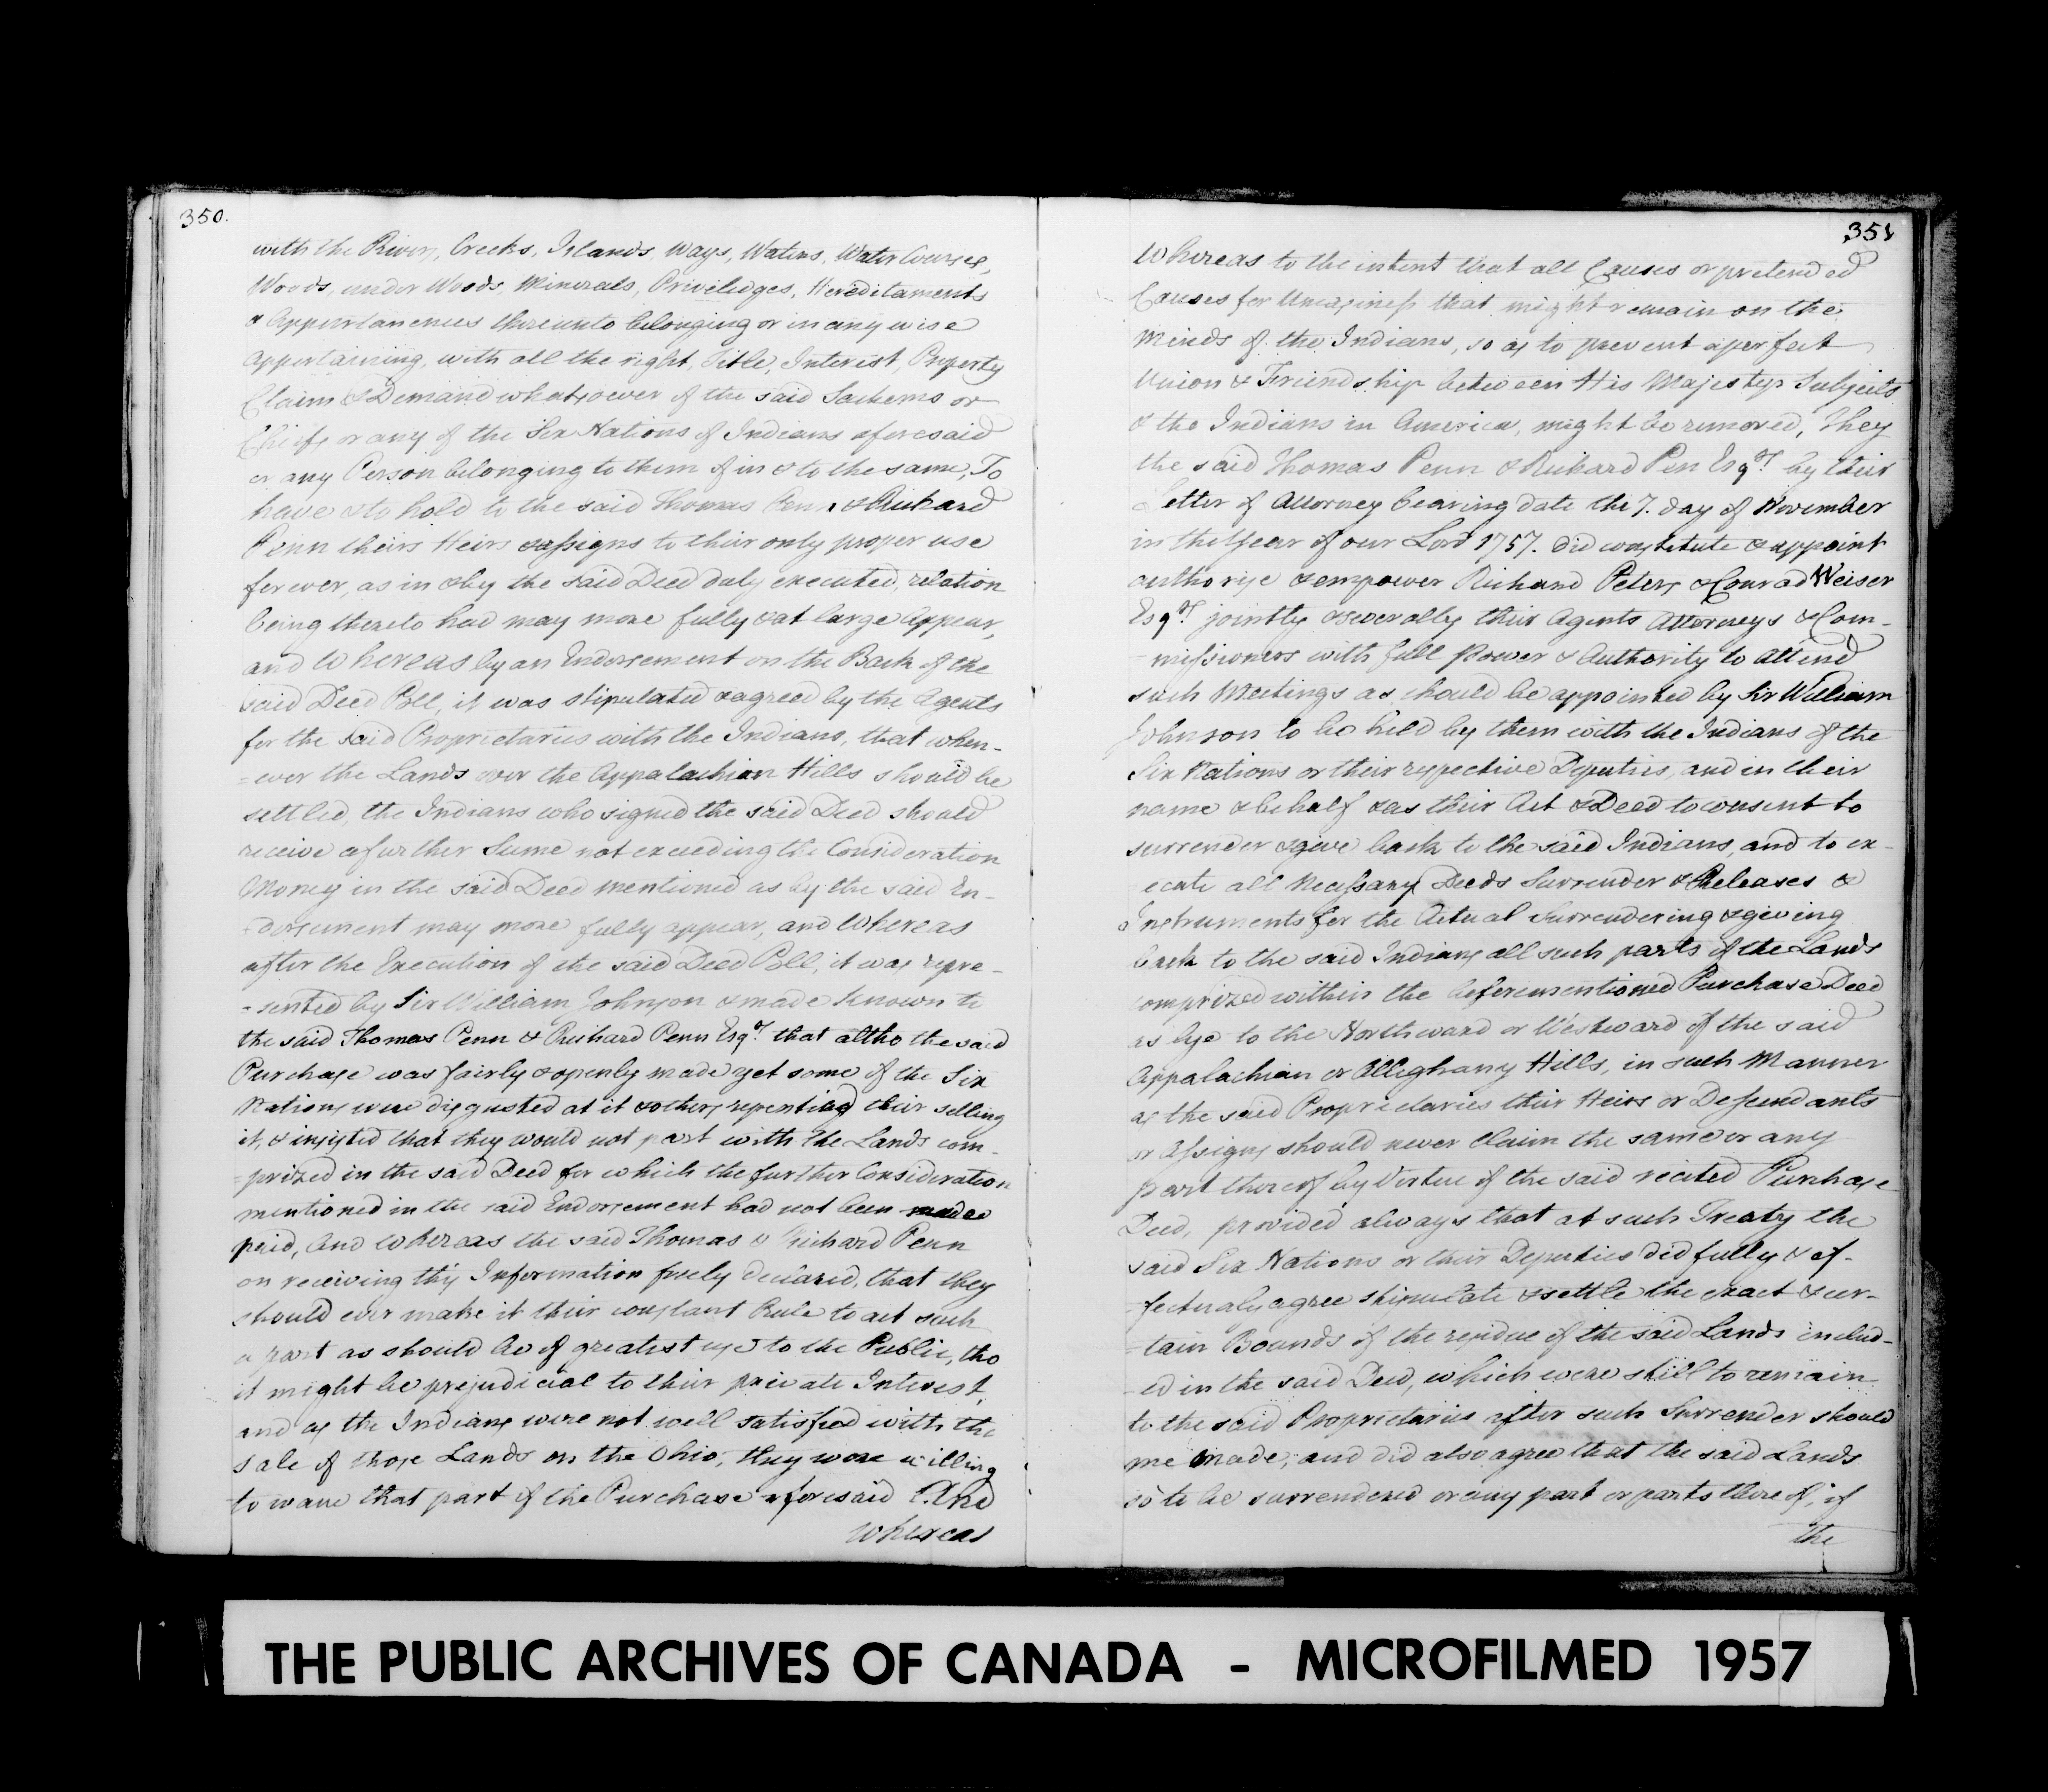 350.
with the Rivers, Creeks, Islands, Ways, Waters, Water Courses,
Woods, under Woods, Minerals, Priveledges, Hereditaments
& Appurtanences thereunto belonging or in any wise
appertaining, with all the right, Title, Interest, Property
Claim & Demand whatsoever of the said Sachems or
Chiefs or any of the Six Nations of Indians aforesaid
or any Person belonging to them of in & to the same, To
have & to hold to the said Thomas Penn & Richard
Penn theirs Heirs & assigns to their only proper use
for ever, as in & by the said Deed duly executed, relation
being thereto had may more fully & at large appear,
and Whereas by an Endorsement on the Back of the
said Deed Poll, it was stipulated & agreed by the Agents
for the said Proprietaries with the Indians, that when-
=ever the Lands over the Appalachian Hills should be
settled, the Indians who signed the said Deed should
receive a further Sume not exceeding the Consideration
Money in the said Deed mentioned as by the said En-
=dorsement may more fully appear, and Whereas
after the Execution of the said Deed Poll, it was repre-
=sented by Sir William Johnson & made known to
the said Thomas Penn & Richard Penn Esqrs. that altho the said
Purchase was fairly & openly made yet some of the Six
Nations were disgusted at it & others repenting their selling
it, & insisted that they would not part with the Lands com-
=prized in the said Deed for which the further Consideration
mentioned in the said Endorsement had not been made
paid, And Whereas the said Thomas & Richard Penn
on receiving this Information freely declared, that they
should ever make it their constant Rule to act such
a part as should be of greatest use to the Public, tho
it might be prejudicial to their private Interest,
and as the Indians were not well satisfied with the
sale of those Lands on the Ohio, they were willing
to wave that part of the Purchase aforesaid And
whereas
351
Whereas to the intent that all Causes or pretended
Causes for Uneasiness that might remain on the
Minds of the Indians, so as to prevent a perfect
Union & Friendship between His Majestys Subjects
& the Indians in America, might be removed, They
the said Thomas Penn & Richard Pen Esqrs. by their
Letter of Attorney bearing date the 7. day of November
in the Year of our Lord 1757. did constitute & appoint
authorise & empower Richard Peters & Conrad Weiser
Esqrs. jointly & severally their Agents Attorneys & Com-
=missioners with full Power & Authority to attend
such Meetings as should be appointed by Sir William
Johnson to be held by them with the Indians of the
Six Nations or their respective Deputies, and in their
name & behalf & as their Act & Deed to consent to
surrender & give back to the said Indians, and to ex-
ecute all Necessary Deeds Surrender & Releases &
Instruments for the Actual Surrendering & giving
back to the said Indians all such parts of the Lands
comprized within the aforementioned Purchase Deed
as lye to the Northward or Westward of the said
Appalachian or Alleghany Hills, in such Manner
as the said Proprietaries their Heirs or Descendants
or Assigns should never claim the same or any
part thereof by Virtue of the said recited Purchase
Deed, provided always that at such Treaty the
said Six Nations or their Deputies did fully & ef-
=fectualy agree stipulate & settle the exact & cer-
=tain Bounds of the residue of the said Lands includ-
=ed in the said Deed, which were still to remain
to the said Proprietaries after such Surrender should
me made, and did also agree that the said Lands
so to be surrendered or any part or parts thereof, if
the
THE PUBLIC ARCHIVES OF CANADA - MICROFILMED 1957